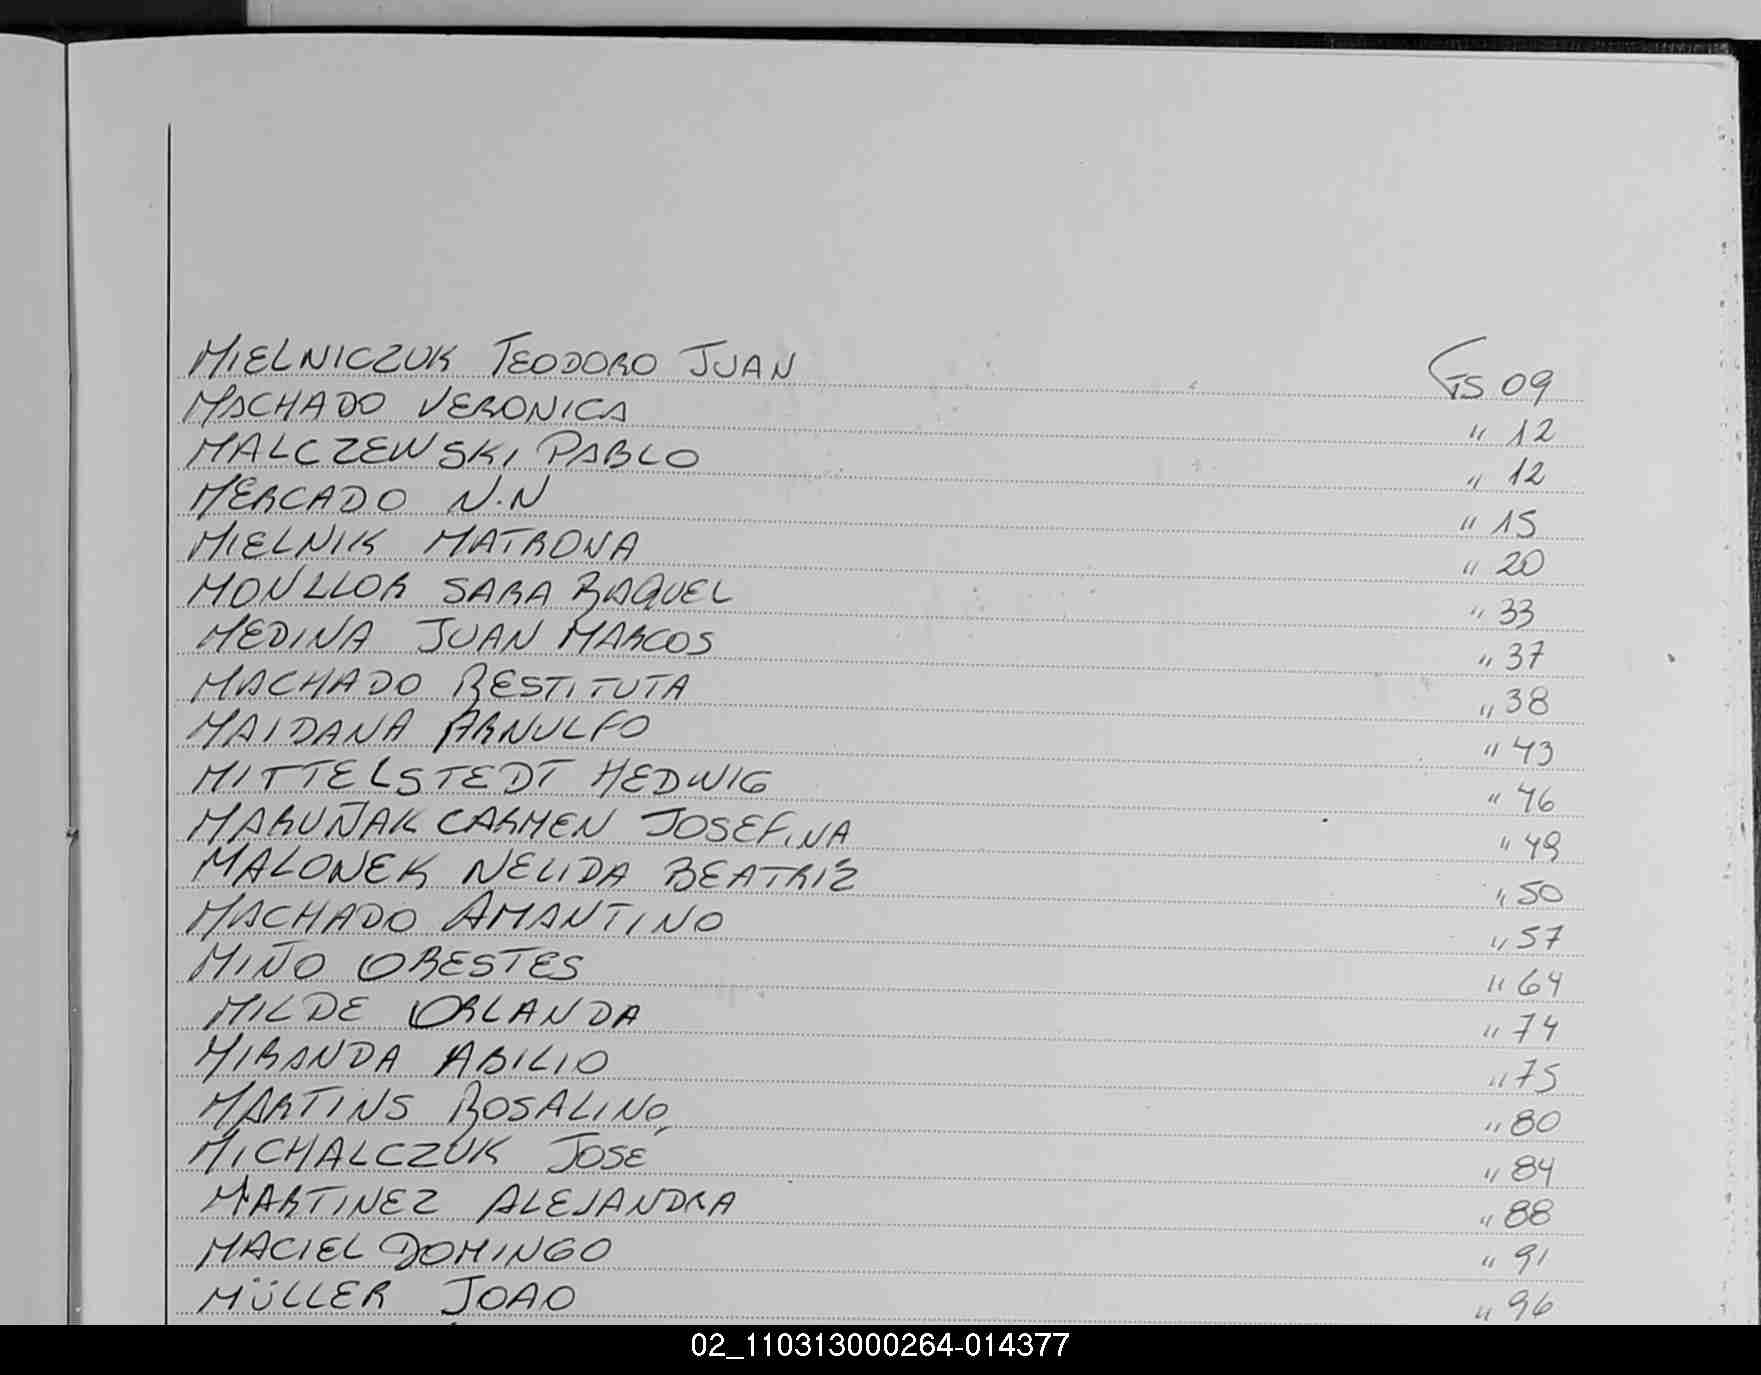 MIELNICZUK TEODORO JUAN FS 09
MACHADO VERONICA " 12
MALCZEWSKI PABLO " 12
MERCADO N.N " 15
MIELNIK MATRONA " 20
MONLLOR SARA RAQUEL " 33
MEDINA JUAN MARCOS " 37
MACHADO RESTITUTA " 38
MAIDANA ARNULFO " 43
MITTELSTEDT HEDWIG " 46
MARUÑAK CARMEN JOSEFINA " 49
MALONEK NELIDA BEATRIZ " 50
MACHADO AMANTINO " 57
MIÑO ORESTES " 64
MILDE ORLANDA " 74
MIRANDA ABILIO " 75
MARTINS ROSALINO " 80
MICHALCZUK JOSÉ " 84
MARTINEZ ALEJANDRA " 88
MACIEL DOMINGO " 91
MÜLLER JOAO " 96
02_110313000264-014377